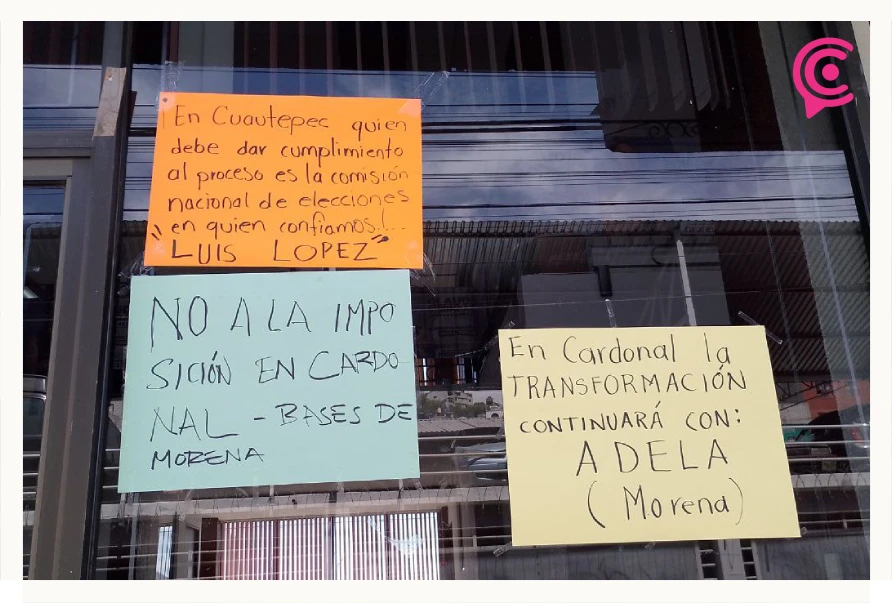 ¡En Cuautepec quien
debe dar cumplimiento
al proceso es la comisión
nacional de elecciones
en quien confiamos!...
"LUIS LOPEZ"
NO A LA IMPO
SICIÓN EN CARDO
NAL - BASES DE
MORENA
En Cardonal la
TRANSFORMACIÓN
CONTINUARÁ CON:
ADELA
(Morena)